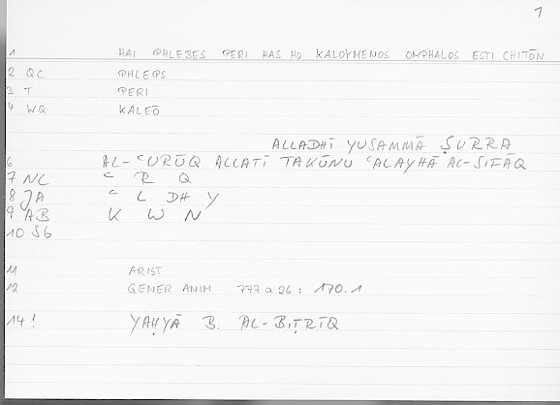 1
1 HAI PHLEBES PERI HAS HO KALOYMENOS OMPHALOS ESTI CHITŌN
2 QC PHLEPS
3 T PERI
4 WQ KALEŌ
ALLADHĪ YUSAMMĀ ṢURRA
6 AL-ʿURŪQ ALLATĪ TAKŪNU ʿALAYHĀ AL-SIFĀQ
7 NL ʿ R Q
8 JA ʿ L DH Y
9 AB K W N
10 SG
11 ARIST
12 GENER ANIM 777 a 26 : 170.1
14 ! YAḤYĀ B. AL-BIṬRĪQ